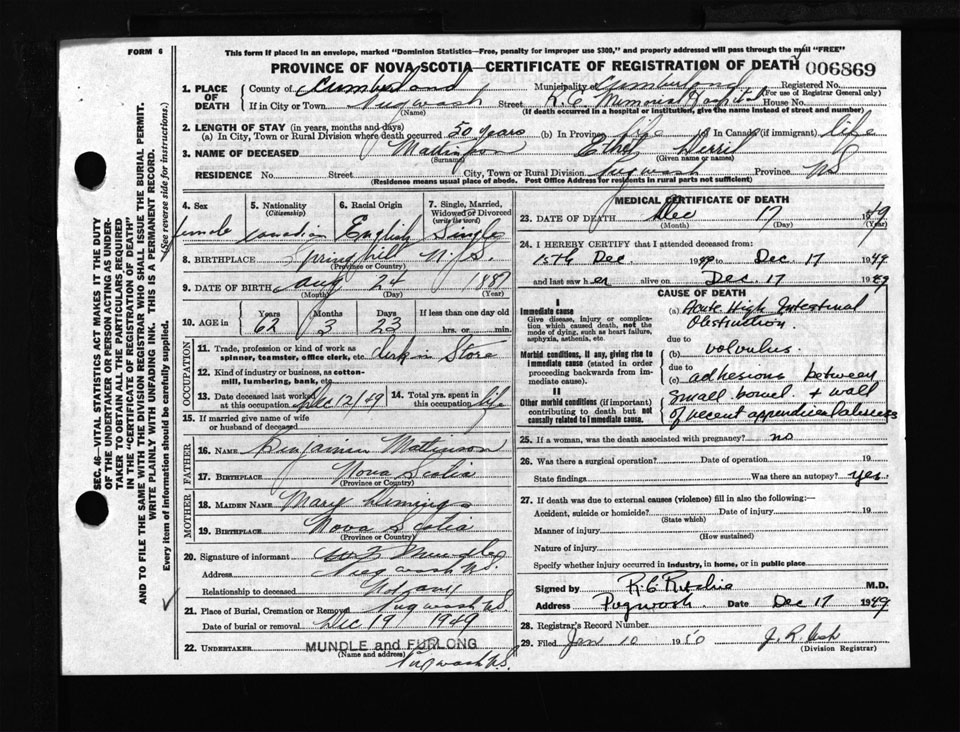 FORM 6
This form if placed in an envelope, marked "Dominion Statistics—Free, penalty for improper use $300," and properly addressed will pass through the mail "FREE"
PROVINCE OF NOVA SCOTIA—CERTIFICATE OF REGISTRATION OF DEATH 006869
1. PLACE OF DEATH County of Cumberland Municipality Cumberland Registered No.
(For use of Registrar General only)
If in City or Town Pugwash Street R.C. Memorial Hospital House No.
(Name) (If death occurred in a hospital or institution, give the name instead of street and number)
2. LENGTH OF STAY (in years, months and days)
(a) In City, Town or Rural Division where death occurred 50 years (b) In Province life (c) In Canada (if immigrant) life
3. NAME OF DECEASED Mattinson Ethel
(Surname) (Given name or names)
RESIDENCE No. Street City, Town or Rural Division Pugwash Province NS
(Residence means usual place of abode. Post Office Address for residents in rural parts not sufficient)
4. Sex 5. Nationality (Citizenship) 6. Racial Origin 7. Single, Married, Widowed or Divorced (write the word)
female Canadian English Single
8. BIRTHPLACE Springhill N.S.
(Province or Country)
9. DATE OF BIRTH Aug 24 1887
(Month) (Day) (Year)
10. AGE in Years Months Days If less than one day old
62 3 23 hrs. or min.
OCCUPATION
11. Trade, profession or kind of work as spinner, teamster, office clerk, etc. Clerk in Store
12. Kind of industry or business, as cotton-mill, lumbering, bank, etc.
13. Date deceased last worked at this occupation Dec 12/49 14. Total yrs. spent in this occupation life
15. If married give name of wife or husband of deceased
FATHER
16. NAME Benjamin Mattinson
17. BIRTHPLACE Nova Scotia
(Province or Country)
MOTHER
18. MAIDEN NAME Mary
19. BIRTHPLACE Nova Scotia
(Province or Country)
20. Signature of informant
Address Pugwash N.S.
Relationship to deceased Not any
21. Place of Burial, Cremation or Removal Pugwash N.S.
Date of burial or removal Dec 19 1949
22. UNDERTAKER MUNDLE and FURLONG
(Name and address) Pugwash N.S.
MEDICAL CERTIFICATE OF DEATH
23. DATE OF DEATH Dec 17 1949
(Month) (Day) (Year)
24. I HEREBY CERTIFY that I attended deceased from:
15th Dec. 1949 to Dec. 17 1949
and last saw her alive on Dec 17 1949
CAUSE OF DEATH
I
Immediate cause
Give disease, injury or complication which caused death, not the mode of dying, such as heart failure, asphyxia, asthenia, etc.
(a) Acute High Intestinal Obstruction.
due to
Morbid conditions, if any, giving rise to immediate cause (stated in order proceeding backwards from immediate cause).
(b) volvulus.
due to
(c) adhesions between small bowel + wall of recent appendiceal abscess
II
Other morbid conditions (if important) contributing to death but not causally related to immediate cause.
25. If a woman, was the death associated with pregnancy? no
26. Was there a surgical operation? Date of operation 19
State findings Was there an autopsy? yes.
27. If death was due to external causes (violence) fill in also the following:—
Accident, suicide or homicide? Date of injury 19
(State which)
Manner of injury
(How sustained)
Nature of injury
Specify whether injury occurred in industry, in home, or in public place
Signed by R.C. Ritchie M.D.
Address Pugwash Date Dec 17 1949
28. Registrar's Record Number
29. Filed Jan 10 1950
(Division Registrar)
SEC. 46—VITAL STATISTICS ACT MAKES IT THE DUTY
OF THE UNDERTAKER OR PERSON ACTING AS UNDER-
TAKER TO OBTAIN ALL THE PARTICULARS REQUIRED
IN THE "CERTIFICATE OF REGISTRATION OF DEATH"
AND TO FILE THE SAME WITH THE DIVISION REGISTRAR WHO SHALL ISSUE THE BURIAL PERMIT.
WRITE PLAINLY WITH UNFADING INK. THIS IS A PERMANENT RECORD.
Every item of information should be carefully supplied. (See reverse side for instructions.)